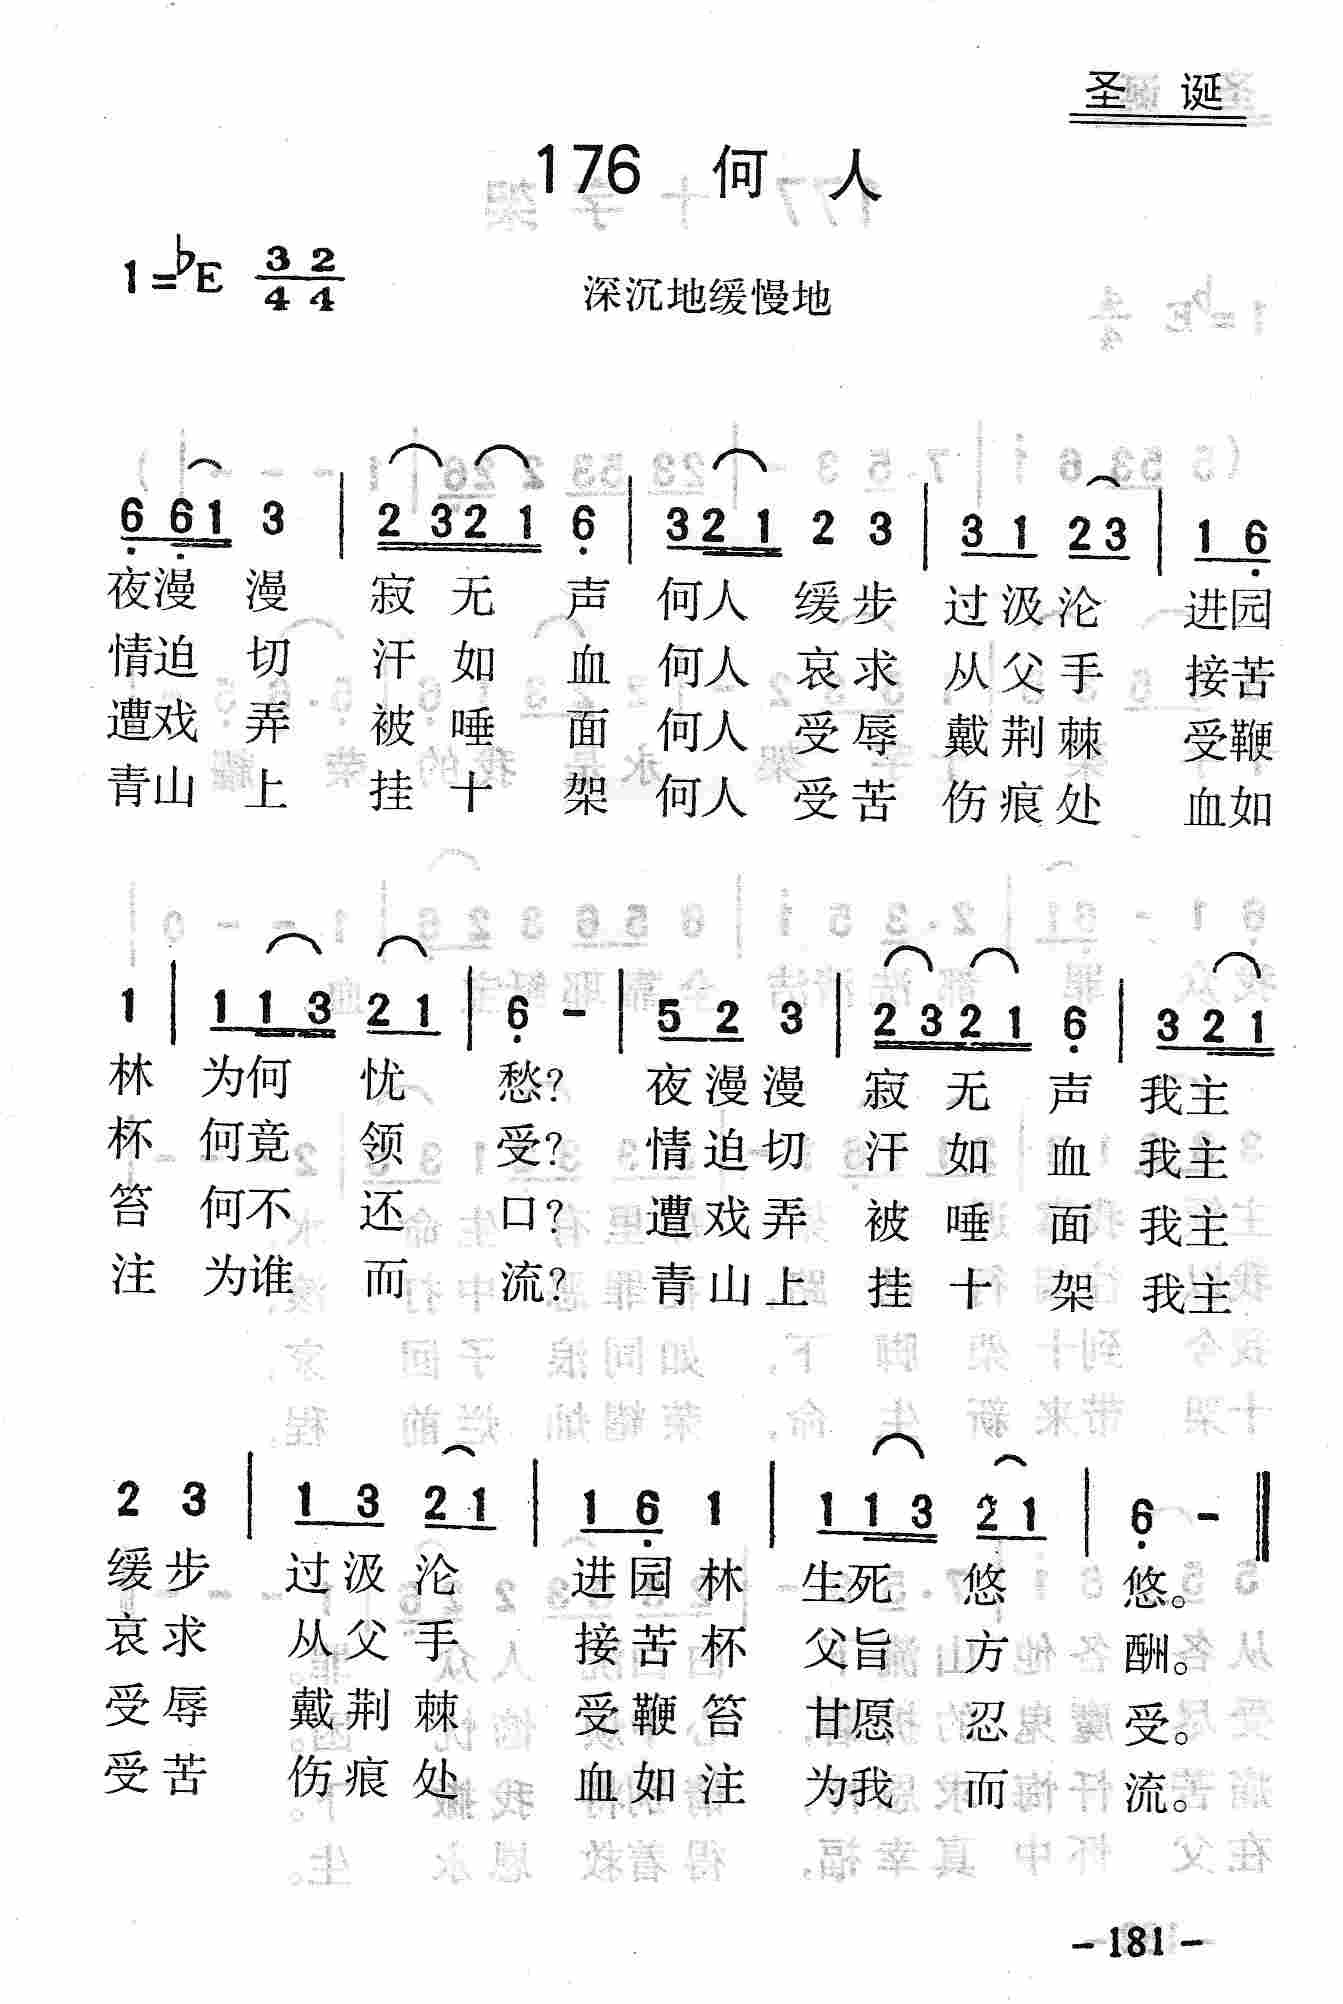 圣 诞
176 何 人
1=♭E 3/4 2/4 深沉地缓慢地
6 6 1 3 | 2 3 2 1 6 | 3 2 1 2 3 | 3 1 2 3 | 1 6
夜漫 漫 寂 无 声 何人 缓步 过汲沦 进园
情迫 切 汗 如 血 何人 哀求 从父手 接苦
遭戏 弄 被 唾 面 何人 受辱 戴荆棘 受鞭
青山 上 挂 十 架 何人 受苦 伤痕处 血如
1 | 1 1 3 2 1 | 6 - | 5 2 3 | 2 3 2 1 6 | 3 2 1
林 为何 忧 愁? 夜漫漫 寂 无 声 我主
杯 何竟 领 受? 情迫切 汗 如 血 我主
笞 何不 还 口? 遭戏弄 被 唾 面 我主
注 为谁 而 流? 青山上 挂 十 架 我主
2 3 | 1 3 2 1 | 1 6 1 | 1 1 3 2 1 | 6 - ‖
缓步 过汲沦 进园林 生死 悠 悠。
哀求 从父手 接苦杯 父旨 方 酬。
受辱 戴荆棘 受鞭笞 甘愿 忍 受。
受苦 伤痕处 血如注 为我 而 流。
-181-